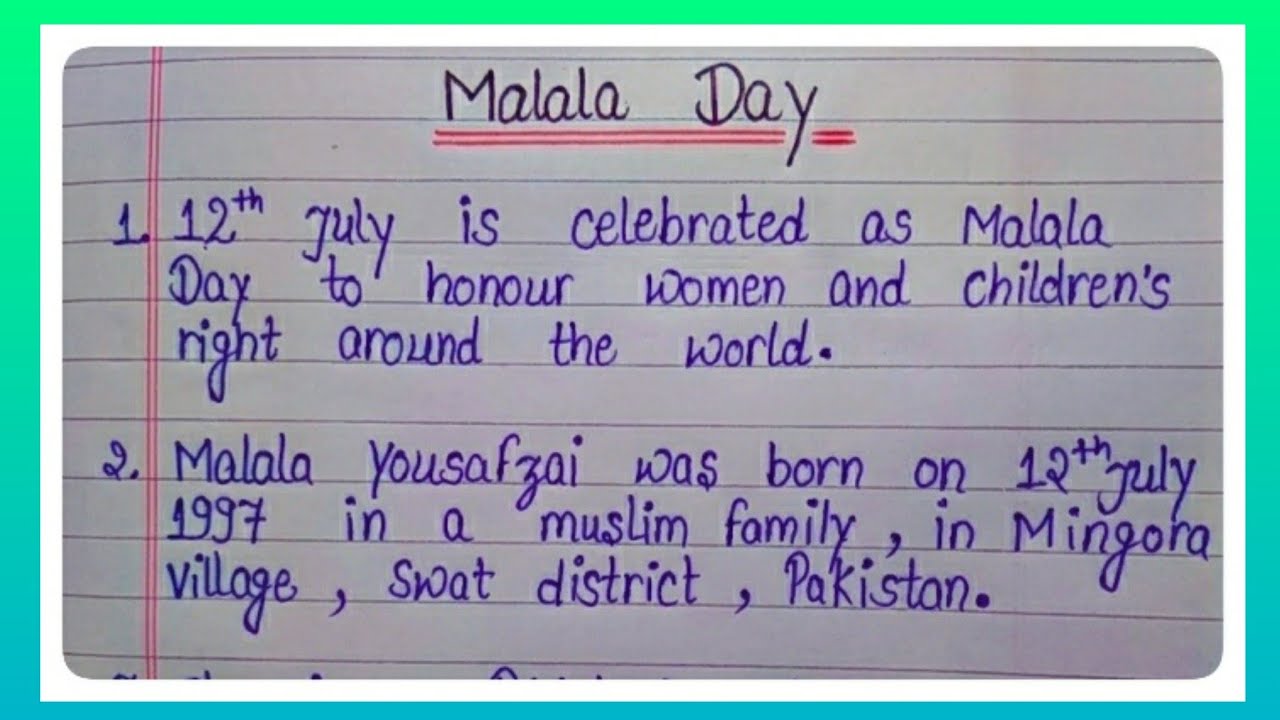 Malala Day
1. 12th July is celebrated as Malala
Day to honour women and children's
right around the world.
2. Malala Yousafzai was born on 12th July
1997 in a muslim family, in Mingora
village, Swat district, Pakistan.